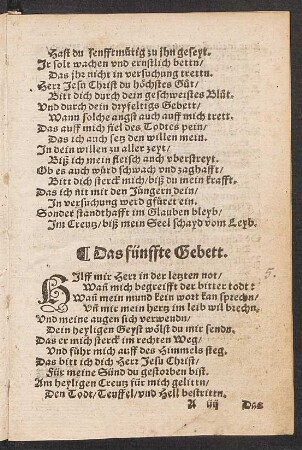 Hast du senfftmütig zu jhn geseyt.
Jr solt wachen vnd ernstlich bettn/
Das jhr nicht in versuchung trettn.
Herr Jesu Christ du höchstes Gůt/
Bitt dich durch dein geschweistes Blůt.
Vnd durch dein dryfeltigs Gebett/
Wann solche angst auch auff mich trett.
Das auff mich fiel des Todtes pein/
Das ich auch setz den willen mein.
In dein willen zu aller zeyt/
Biß ich mein fleisch auch vberstreyt.
Ob es auch würd schwach vnd zaghafft/
Bitt dich sterck mich/ biß du mein krafft.
Das ich nit mit den Jüngern dein/
In versuchung werd gfüret ein.
Sonder standthafft im Glauben bleyb/
Im Creutz/ biß mein Seel schayd vom Leyb.
¶ Das fünffte Gebett.
5.
HIlff mir Herr in der letzten not/
Wañ mich begreifft der bitter todt:
Wañ mein mund kein wort kan sprechn/
Vñ mir mein hertz im leib wil brechn.
Vnd meine augen sich verwendn/
Dein heyligen Geyst wölst du mir sendn.
Das er mich sterck im rechten Weg/
Vnd führ mich auff des Himmels steg.
Das bitt ich dich Herr Jesu Christ/
Für meine Sünd du gestorben bist.
Am heyligen Creutz für mich gelittn/
Den Todt/ Teuffel/ vnd Hell bestrittn.
A iiij Das